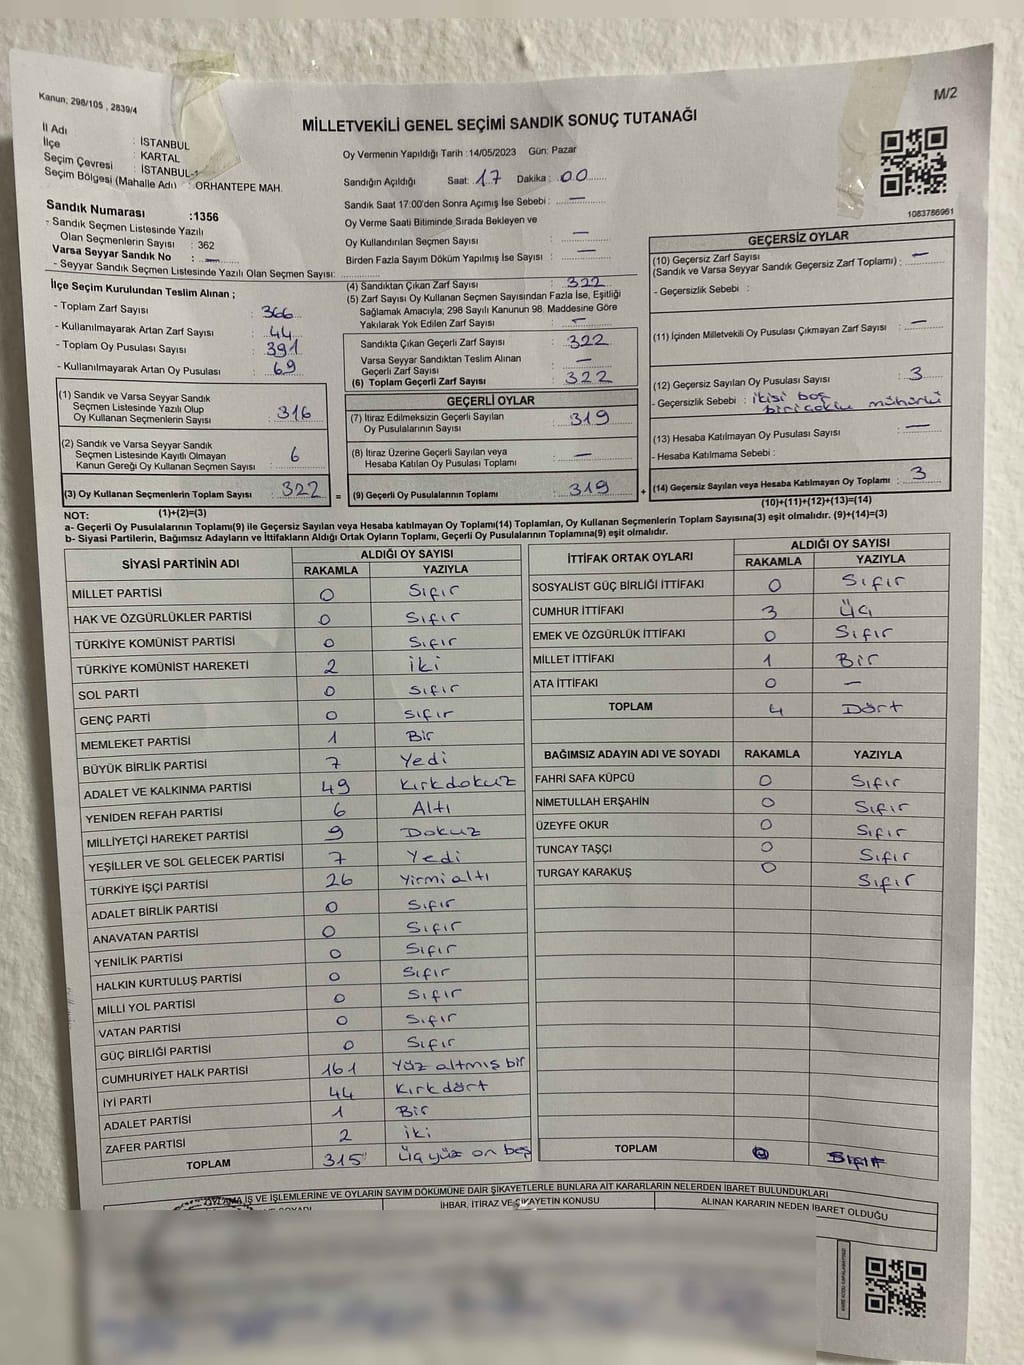 Kanun; 298/105 , 2839/4
M/2
MİLLETVEKİLİ GENEL SEÇİMİ SANDIK SONUÇ TUTANAĞI
İl Adı : İSTANBUL
İlçe : KARTAL
Seçim Çevresi : İSTANBUL-1
Seçim Bölgesi (Mahalle Adı) : ORHANTEPE MAH.
Sandık Numarası :1356
- Sandık Seçmen Listesinde Yazılı
Olan Seçmenlerin Sayısı : 362
Varsa Seyyar Sandık No : —
- Seyyar Sandık Seçmen Listesinde Yazılı Olan Seçmen Sayısı:
Oy Vermenin Yapıldığı Tarih :14/05/2023 Gün: Pazar
Sandığın Açıldığı Saat: 17 Dakika : 00
Sandık Saat 17:00'den Sonra Açımış İse Sebebi : —
Oy Verme Saati Bitiminde Sırada Bekleyen ve
Oy Kullandırılan Seçmen Sayısı : —
Birden Fazla Sayım Döküm Yapılmış İse Sayısı : —
1083786961
İlçe Seçim Kurulundan Teslim Alınan ;
- Toplam Zarf Sayısı : 366
- Kullanılmayarak Artan Zarf Sayısı : 44
- Toplam Oy Pusulası Sayısı : 391
- Kullanılmayarak Artan Oy Pusulası : 69
(1) Sandık ve Varsa Seyyar Sandık
Seçmen Listesinde Yazılı Olup
Oy Kullanan Seçmenlerin Sayısı : 316
(2) Sandık ve Varsa Seyyar Sandık
Seçmen Listesinde Kayıtlı Olmayan
Kanun Gereği Oy Kullanan Seçmen Sayısı : 6
(3) Oy Kullanan Seçmenlerin Toplam Sayısı : 322
(1)+(2)=(3)
(4) Sandıktan Çıkan Zarf Sayısı : 322
(5) Zarf Sayısı Oy Kullanan Seçmen Sayısından Fazla İse, Eşitliği
Sağlamak Amacıyla; 298 Sayılı Kanunun 98. Maddesine Göre
Yakılarak Yok Edilen Zarf Sayısı : —
Sandıkta Çıkan Geçerli Zarf Sayısı : 322
Varsa Seyyar Sandıktan Teslim Alınan
Geçerli Zarf Sayısı : —
(6) Toplam Geçerli Zarf Sayısı : 322
GEÇERLİ OYLAR
(7) İtiraz Edilmeksizin Geçerli Sayılan
Oy Pusulalarının Sayısı : 319
(8) İtiraz Üzerine Geçerli Sayılan veya
Hesaba Katılan Oy Pusulası Toplamı : —
= (9) Geçerli Oy Pusulalarının Toplamı : 319 +
GEÇERSİZ OYLAR
(10) Geçersiz Zarf Sayısı
(Sandık ve Varsa Seyyar Sandık Geçersiz Zarf Toplamı) : —
- Geçersizlik Sebebi :
(11) İçinden Milletvekili Oy Pusulası Çıkmayan Zarf Sayısı : —
(12) Geçersiz Sayılan Oy Pusulası Sayısı : 3
- Geçersizlik Sebebi : ikisi boş
biri çoklu mühürlü
(13) Hesaba Katılmayan Oy Pusulası Sayısı : —
- Hesaba Katılmama Sebebi :
(14) Geçersiz Sayılan veya Hesaba Katılmayan Oy Toplamı : 3
(10)+(11)+(12)+(13)=(14)
NOT:
a- Geçerli Oy Pusulalarının Toplamı(9) ile Geçersiz Sayılan veya Hesaba katılmayan Oy Toplamı(14) Toplamları, Oy Kullanan Seçmenlerin Toplam Sayısına(3) eşit olmalıdır. (9)+(14)=(3)
b- Siyasi Partilerin, Bağımsız Adayların ve İttifakların Aldığı Ortak Oyların Toplamı, Geçerli Oy Pusulalarının Toplamına(9) eşit olmalıdır.
SİYASİ PARTİNİN ADI ALDIĞI OY SAYISI
RAKAMLA YAZIYLA
MİLLET PARTİSİ 0 Sıfır
HAK VE ÖZGÜRLÜKLER PARTİSİ 0 Sıfır
TÜRKİYE KOMÜNİST PARTİSİ 0 Sıfır
TÜRKİYE KOMÜNİST HAREKETİ 2 iki
SOL PARTİ 0 Sıfır
GENÇ PARTİ 0 Sıfır
MEMLEKET PARTİSİ 1 Bir
BÜYÜK BİRLİK PARTİSİ 7 Yedi
ADALET VE KALKINMA PARTİSİ 49 Kırkdokuz
YENİDEN REFAH PARTİSİ 6 Altı
MİLLİYETÇİ HAREKET PARTİSİ 9 Dokuz
YEŞİLLER VE SOL GELECEK PARTİSİ 7 Yedi
TÜRKİYE İŞÇİ PARTİSİ 26 Yirmialtı
ADALET BİRLİK PARTİSİ 0 Sıfır
ANAVATAN PARTİSİ 0 Sıfır
YENİLİK PARTİSİ 0 Sıfır
HALKIN KURTULUŞ PARTİSİ 0 Sıfır
MİLLİ YOL PARTİSİ 0 Sıfır
VATAN PARTİSİ 0 Sıfır
GÜÇ BİRLİĞİ PARTİSİ 0 Sıfır
CUMHURİYET HALK PARTİSİ 161 Yüz altmış bir
İYİ PARTİ 44 Kırkdört
ADALET PARTİSİ 1 Bir
ZAFER PARTİSİ 2 iki
TOPLAM 315 Üçyüz on beş
İTTİFAK ORTAK OYLARI ALDIĞI OY SAYISI
RAKAMLA YAZIYLA
SOSYALİST GÜÇ BİRLİĞİ İTTİFAKI 0 Sıfır
CUMHUR İTTİFAKI 3 Üç
EMEK VE ÖZGÜRLÜK İTTİFAKI 0 Sıfır
MİLLET İTTİFAKI 1 Bir
ATA İTTİFAKI 0 —
TOPLAM 4 Dört
BAĞIMSIZ ADAYIN ADI VE SOYADI RAKAMLA YAZIYLA
FAHRİ SAFA KÜPCÜ 0 Sıfır
NİMETULLAH ERŞAHİN 0 Sıfır
ÜZEYFE OKUR 0 Sıfır
TUNCAY TAŞÇI 0 Sıfır
TURGAY KARAKUŞ 0 Sıfır
TOPLAM 0 Sıfır
OYLAMA İŞ VE İŞLEMLERİNE VE OYLARIN SAYIM DÖKÜMÜNE DAİR ŞİKAYETLERLE BUNLARA AİT KARARLARIN NELERDEN İBARET BULUNDUKLARI
İHBAR, İTİRAZ VE ŞİKAYETİN KONUSU ALINAN KARARIN NEDEN İBARET OLDUĞU